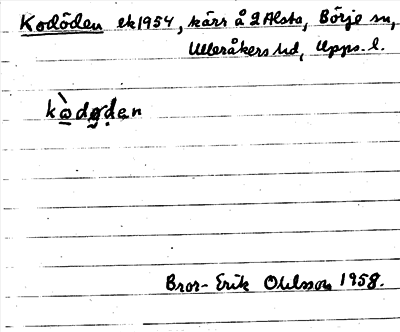 Kodöden ek 1954, kärr å 2 Alsta, Börje sn,
Ulleråkers hd, Upps. l.
kò̱dø̱ḍen
Bror-Erik Ohlsson 1958.